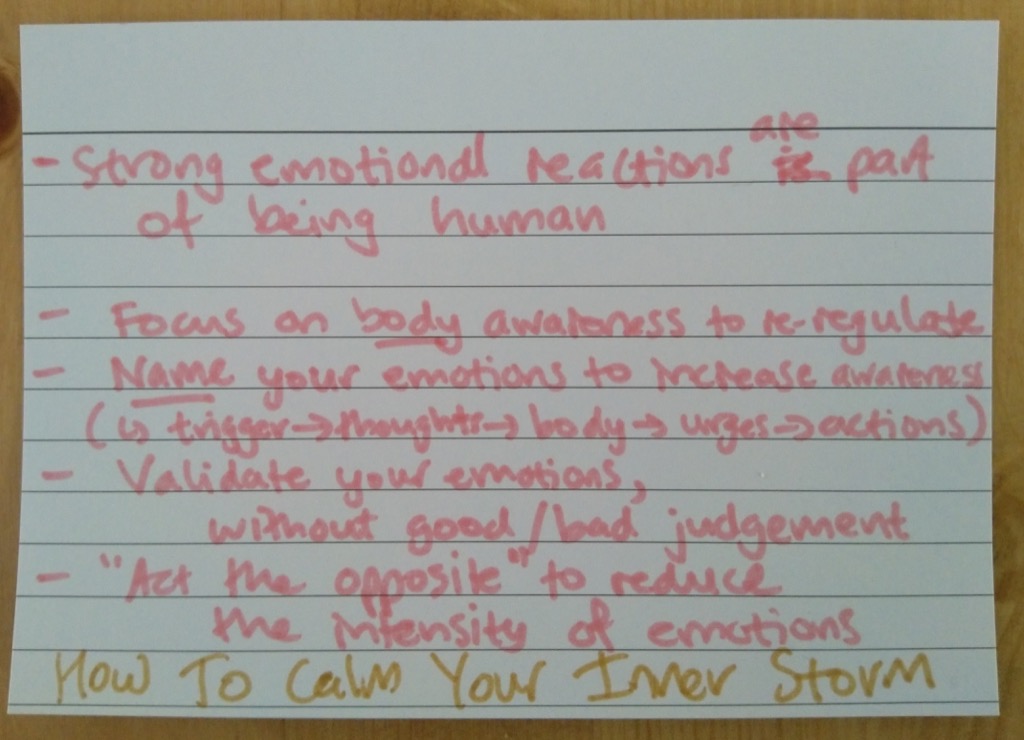 are
- Strong emotional reactions is part
of being human
- Focus on body awareness to re-regulate
- Name your emotions to increase awareness
(↳ trigger→thoughts→ body→ urges→actions)
- Validate your emotions,
without good/bad judgement
- "Act the opposite" to reduce
the intensity of emotions
How To Calm Your Inner Storm